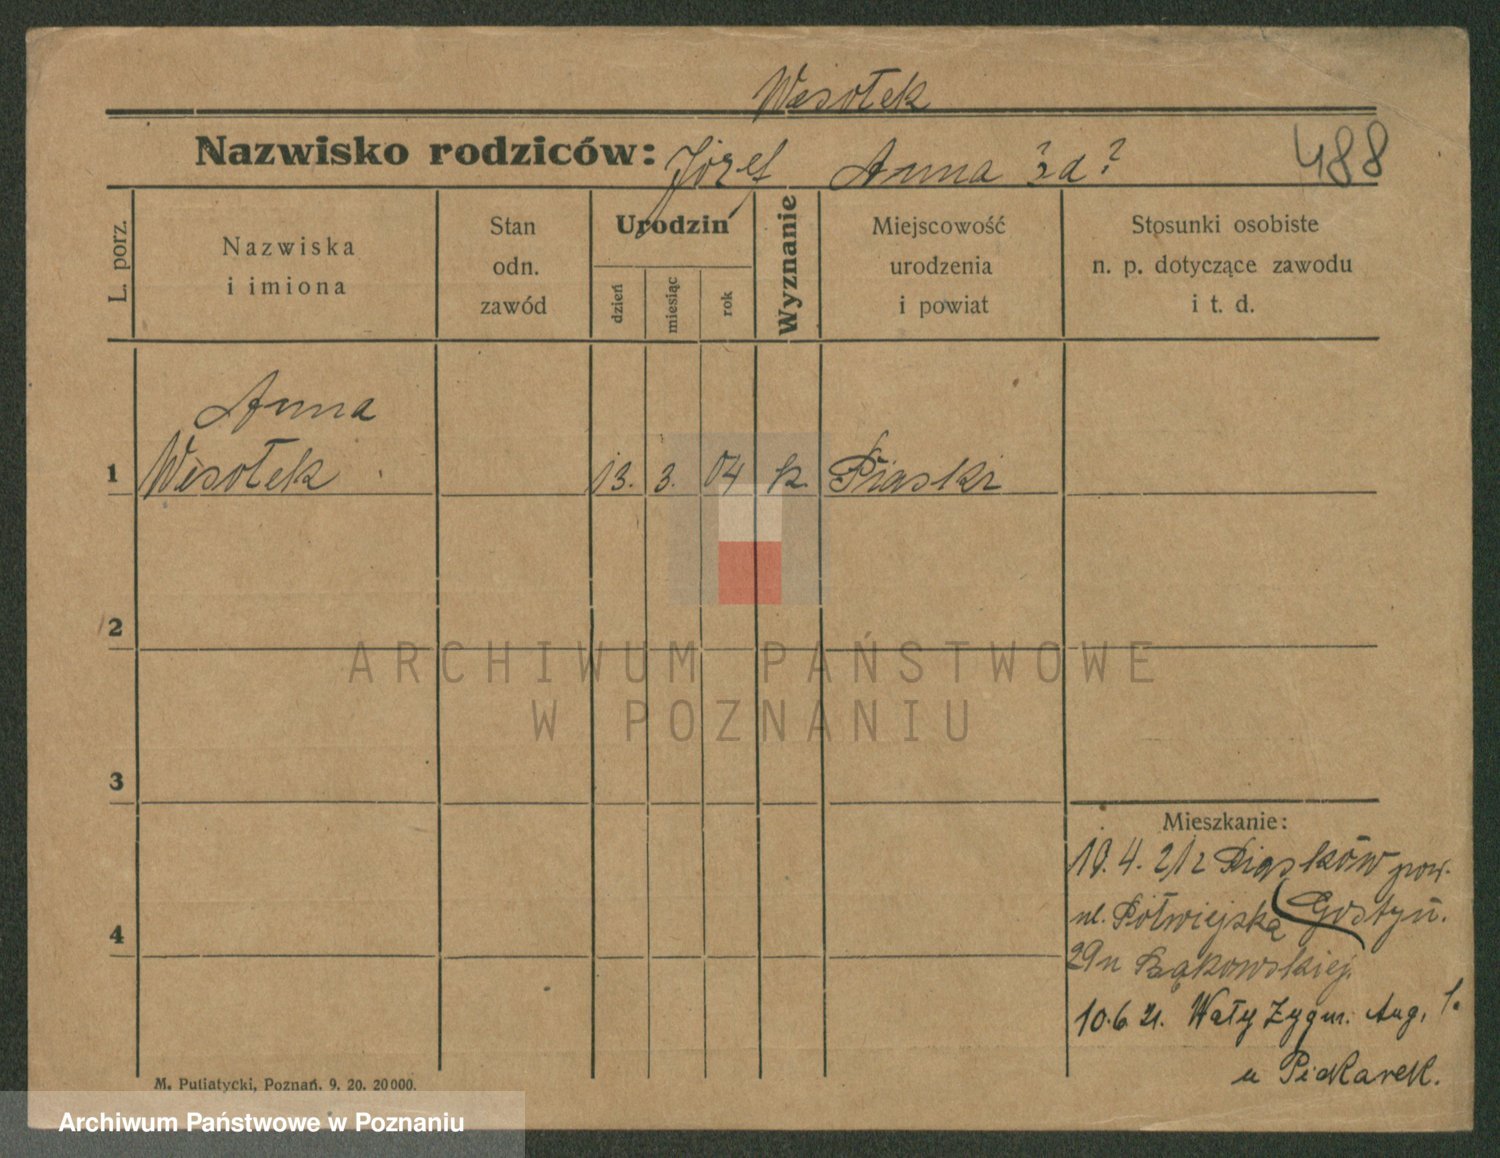 Wesołek
Nazwisko rodziców: Józef Anna ? d ?
488
L. porz.
Nazwiska
i imiona
Stan
odn.
zawód
Urodzin
dzień
miesiąc
rok
Wyznanie
Miejscowość
urodzenia
i powiat
Stosunki osobiste
n. p. dotyczące zawodu
i t. d.
Anna
1 Wesołek 13. 3. 04 k. Piaski
2
ARCHIWUM PAŃSTWOWE
W POZNANIU
3
Mieszkanie:
19.4.21 z Piasków pow.
Gostyń.
ul. Półwiejska
29 u Bąkowskiej.
4
10.6.21. Wały Zygm. Aug. 1.
u Piekarek.
M. Putiatycki, Poznań. 9. 20. 20000.
Archiwum Państwowe w Poznaniu